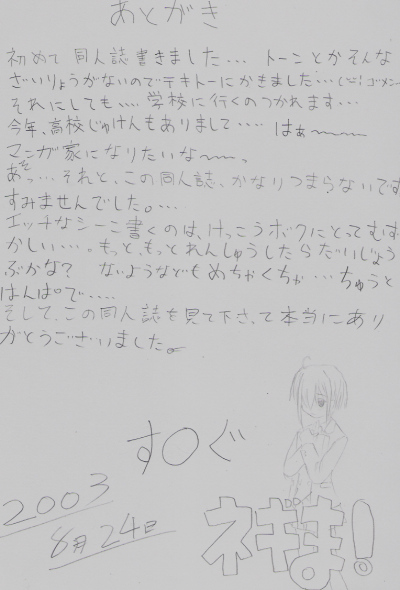 あとがき
初めて同人誌書きました… トーンとかそんな
ざいりょうがないのでテキトーにかきました…(ゴメン
それにしても…、学校に行くのつかれます…
今年、高校じゅけんもありまして…‥ はぁ〜〜〜
マンガ家になりたいな〜〜。
あっ…それと、この同人誌、かなりつまらないです
すみませんでした。…
エッチなシーン書くのは、けっこうボクにとってむず
かしい…。もっと、もっとれんしゅうしたらだいじょう
ぶかな? ないようなどもめちゃくちゃ…ちゅうと
はんぱで…‥
そして、この同人誌を見て下さって本当にあり
がとうございました。
す〇ぐ
2003
8月24日
ネギま!